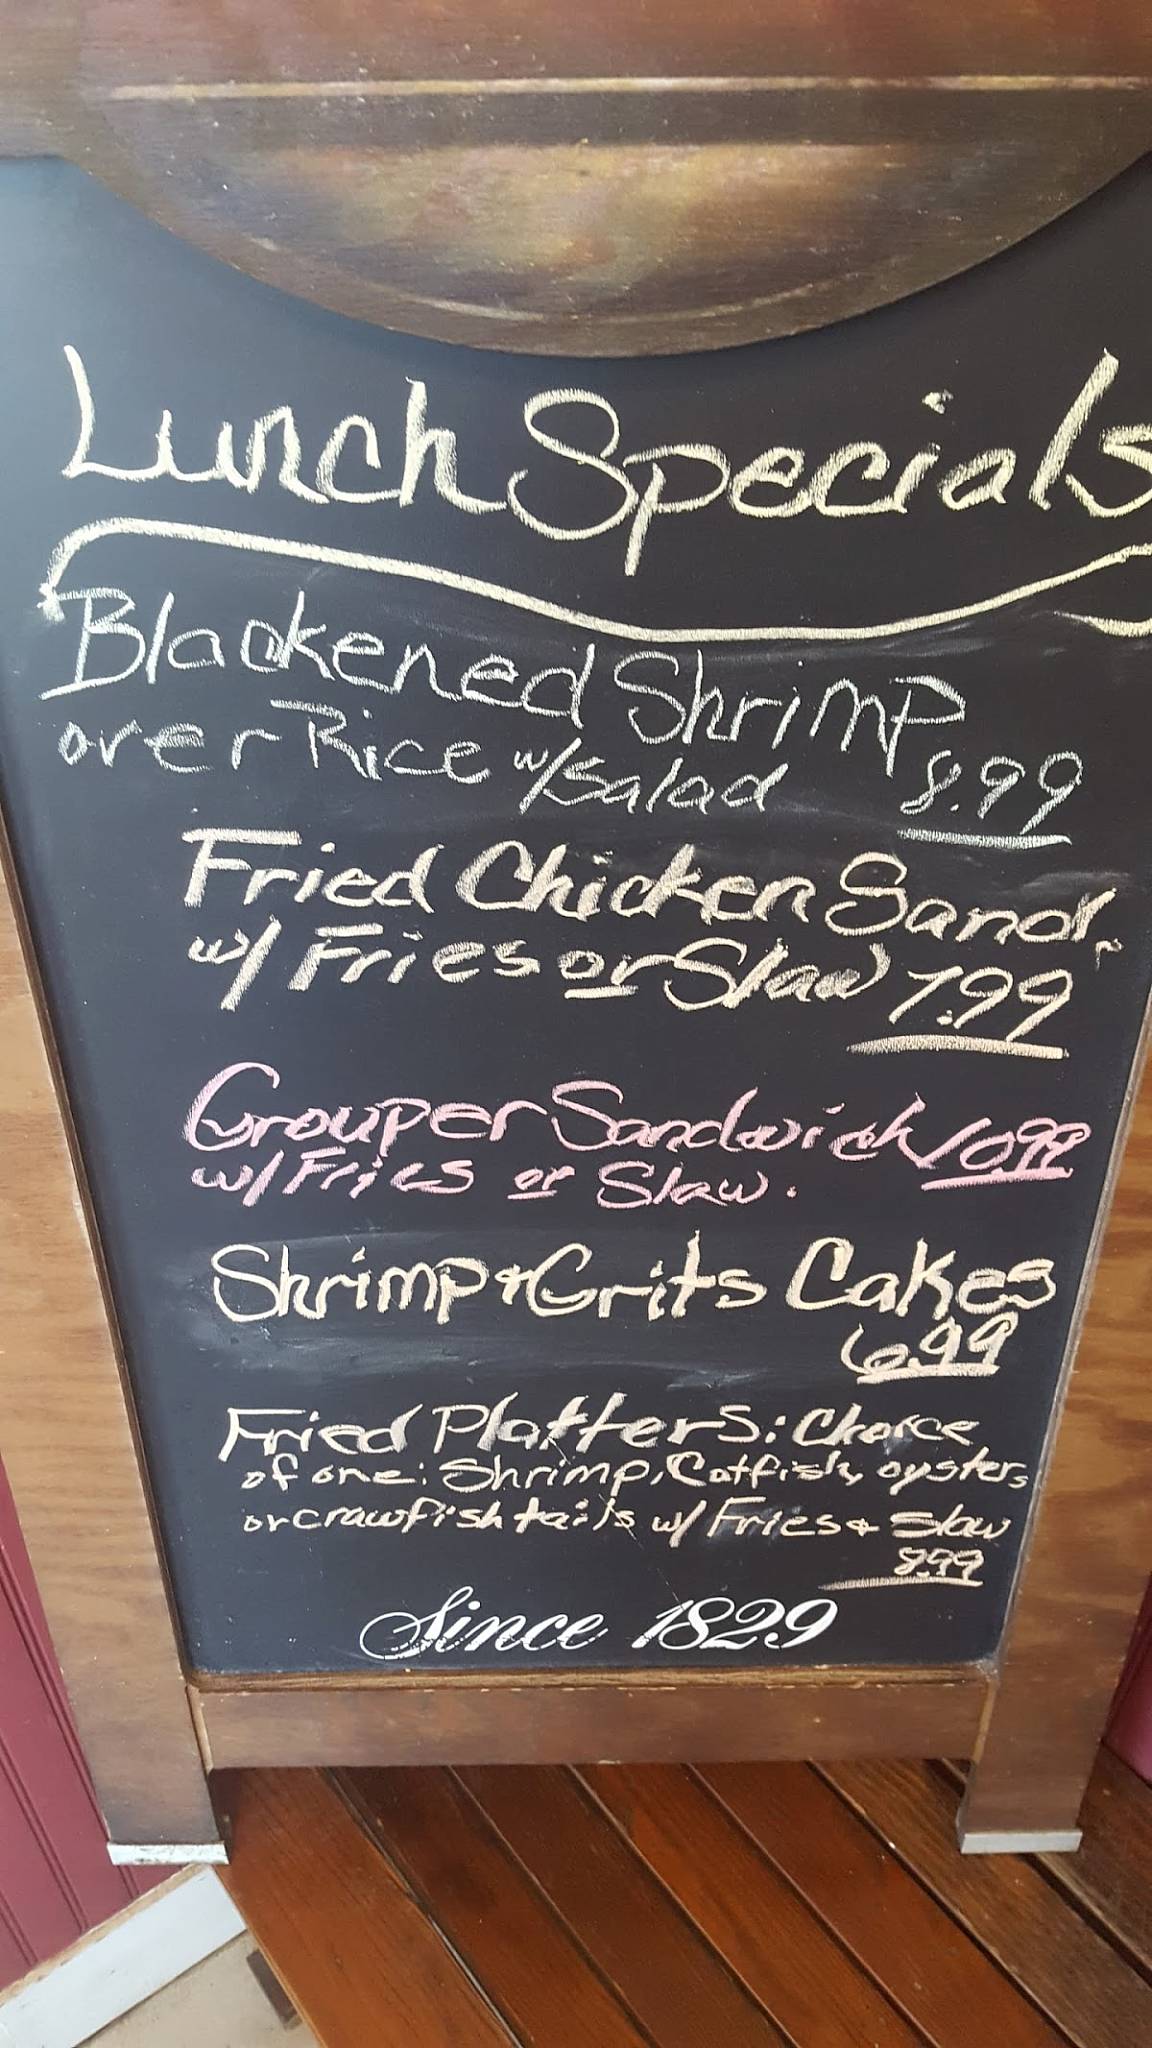 Lunch Specials
Blackened Shrimp
over Rice w/salad 8.99
Fried Chicken Sand.
w/ Fries or Slaw 7.99
Grouper Sandwich 10.99
w/ Fries or Slaw.
Shrimp & Grits Cakes
6.99
Fried Platters: Choice
of one: Shrimp, Catfish, oysters
or crawfish tails w/ Fries & Slaw
8.99
Since 1829